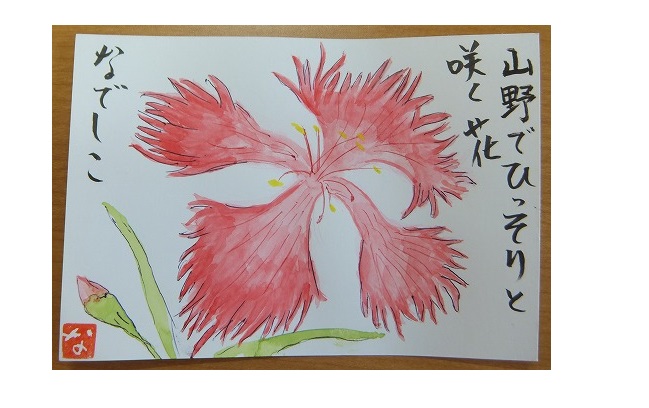 山野でひっそりと
咲く花
なでしこ